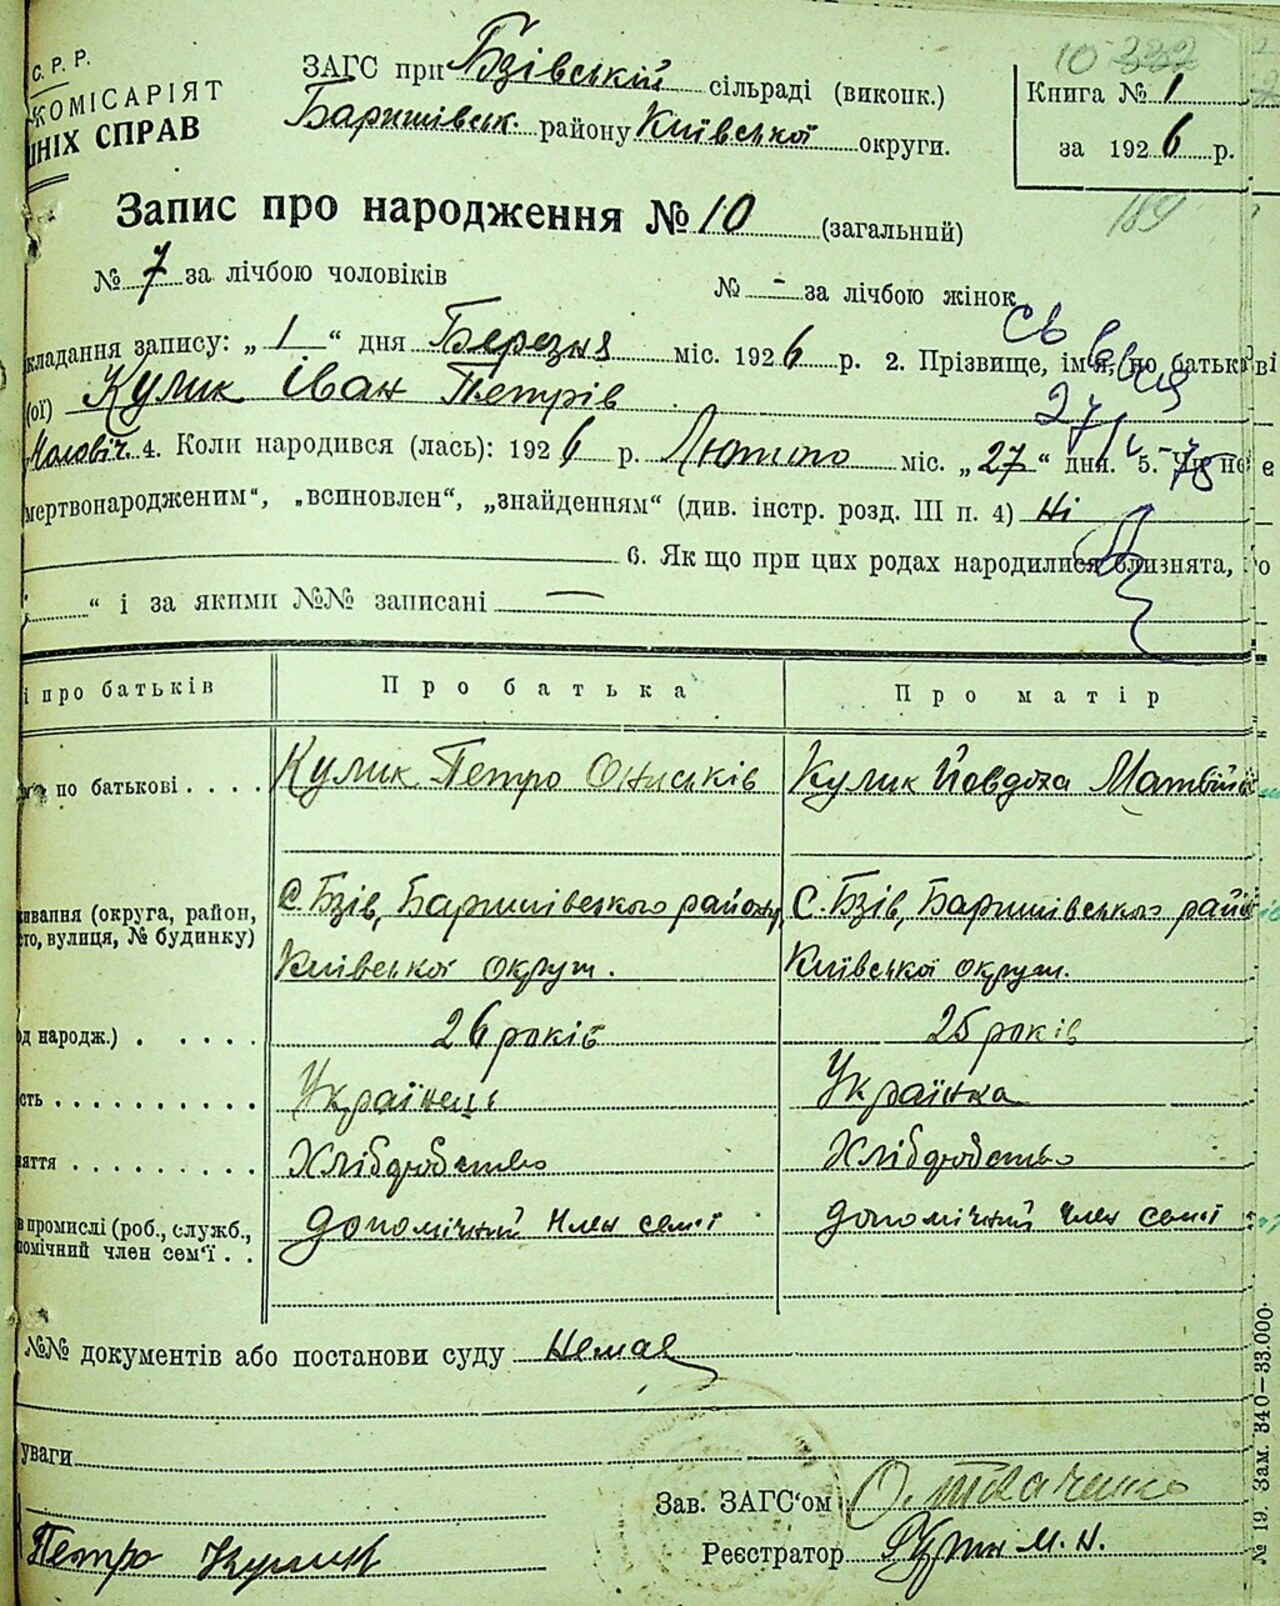 С. Р. Р.
КОМІСАРІЯТ
ШНІХ СПРАВ
ЗАГС при Бзівській сільраді (виконк.)
Баришівськ. району Київської округи.
10 332
Книга № 1
за 1926 р.
Запис про народження № 10 (загальний)
189
№ 7 за лічбою чоловіків № - за лічбою жінок
кладання запису: „ 1 “ дня Березня міс. 1926 р. 2. Прізвище, ім'я, по батькові
(ої) Кулик Іван Петрів
Чоловіч. 4. Коли народився (лась): 1926 р. Лютого міс. „ 27 “ дня. 5. Чи не є
мертвонародженим“, „всиновлен“, „знайденням“ (див. інстр. розд. III п. 4) Ні
6. Як що при цих родах народилися близнята, то
“ і за якими №№ записані —
і про батьків Про батька Про матір
по батькові . . . . Кулик Петро Ониськів Кулик Йовдоха Матвійів
живання (округа, район, с. Бзів, Баришівського району, с. Бзів, Баришівського рай
сто, вулиця, № будинку) Київської округи. Київської округи.
од народж.) . . . . . 26 років 25 років
сть . . . . . . . . . . Українець Українка
няття . . . . . . . . . Хліборобство Хліборобство
в промислі (роб., служб., допомічний член семʼї допомічний член семʼї
помічний член сем'ї . .
№№ документів або постанови суду Немає
уваги
Зав. ЗАГС'ом О. Ткаченко
Петро Кулик Реєстратор М. Н.
№ 19. Зам. 340—33.000.